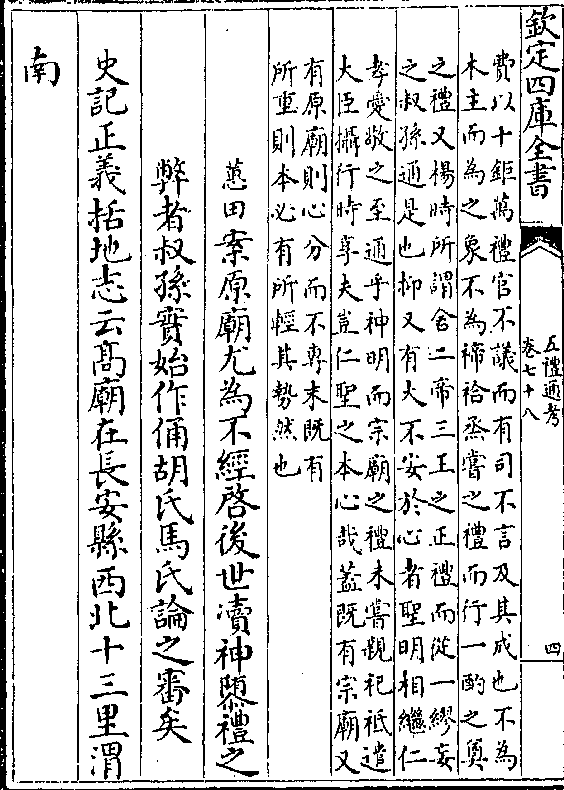 欽定四庫全書
五禮通考
卷七十八
四
費以十鉅萬禮官不議而有司不言及其成也不為
木主而為之象不為禘祫烝嘗之禮而行一酌之奠
之禮又楊時所謂舍二帝三王之正禮而從一繆妄
之叔孫通是也抑又有大不安於心者聖明相繼仁
孝愛敬之至通乎神明而宗廟之禮未嘗親祀祗遣
大臣攝行時享夫豈仁聖之本心哉葢既有宗廟又
有原廟則心分而不專末既有
所重則本必有所輕其勢然也
蕙田案原廟尤為不經啓後世瀆神隳禮之
弊者叔孫實始作俑胡氏馬氏論之審矣
史記正義括地志云髙廟在長安縣西北十三里渭
南